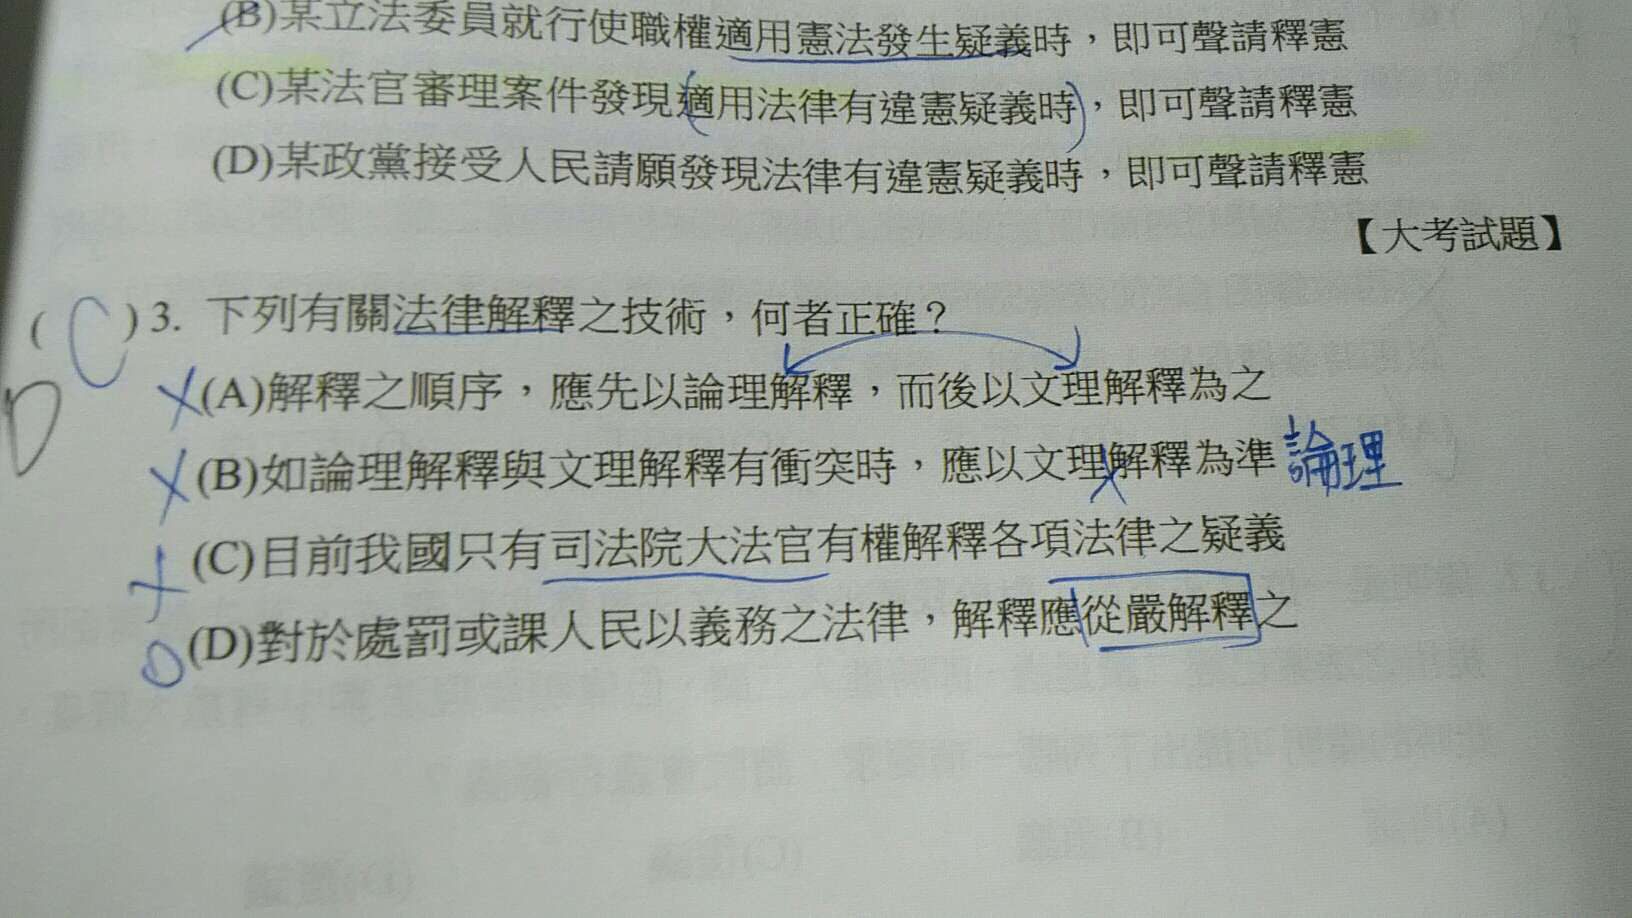 (B)某立法委員就行使職權適用憲法發生疑義時，即可聲請釋憲
(C)某法官審理案件發現適用法律有違憲疑義時，即可聲請釋憲
(D)某政黨接受人民請願發現法律有違憲疑義時，即可聲請釋憲
【大考試題】
( C )3. 下列有關法律解釋之技術，何者正確？
D
(A)解釋之順序，應先以論理解釋，而後以文理解釋為之
(B)如論理解釋與文理解釋有衝突時，應以文理解釋為準 論理
(C)目前我國只有司法院大法官有權解釋各項法律之疑義
(D)對於處罰或課人民以義務之法律，解釋應從嚴解釋之